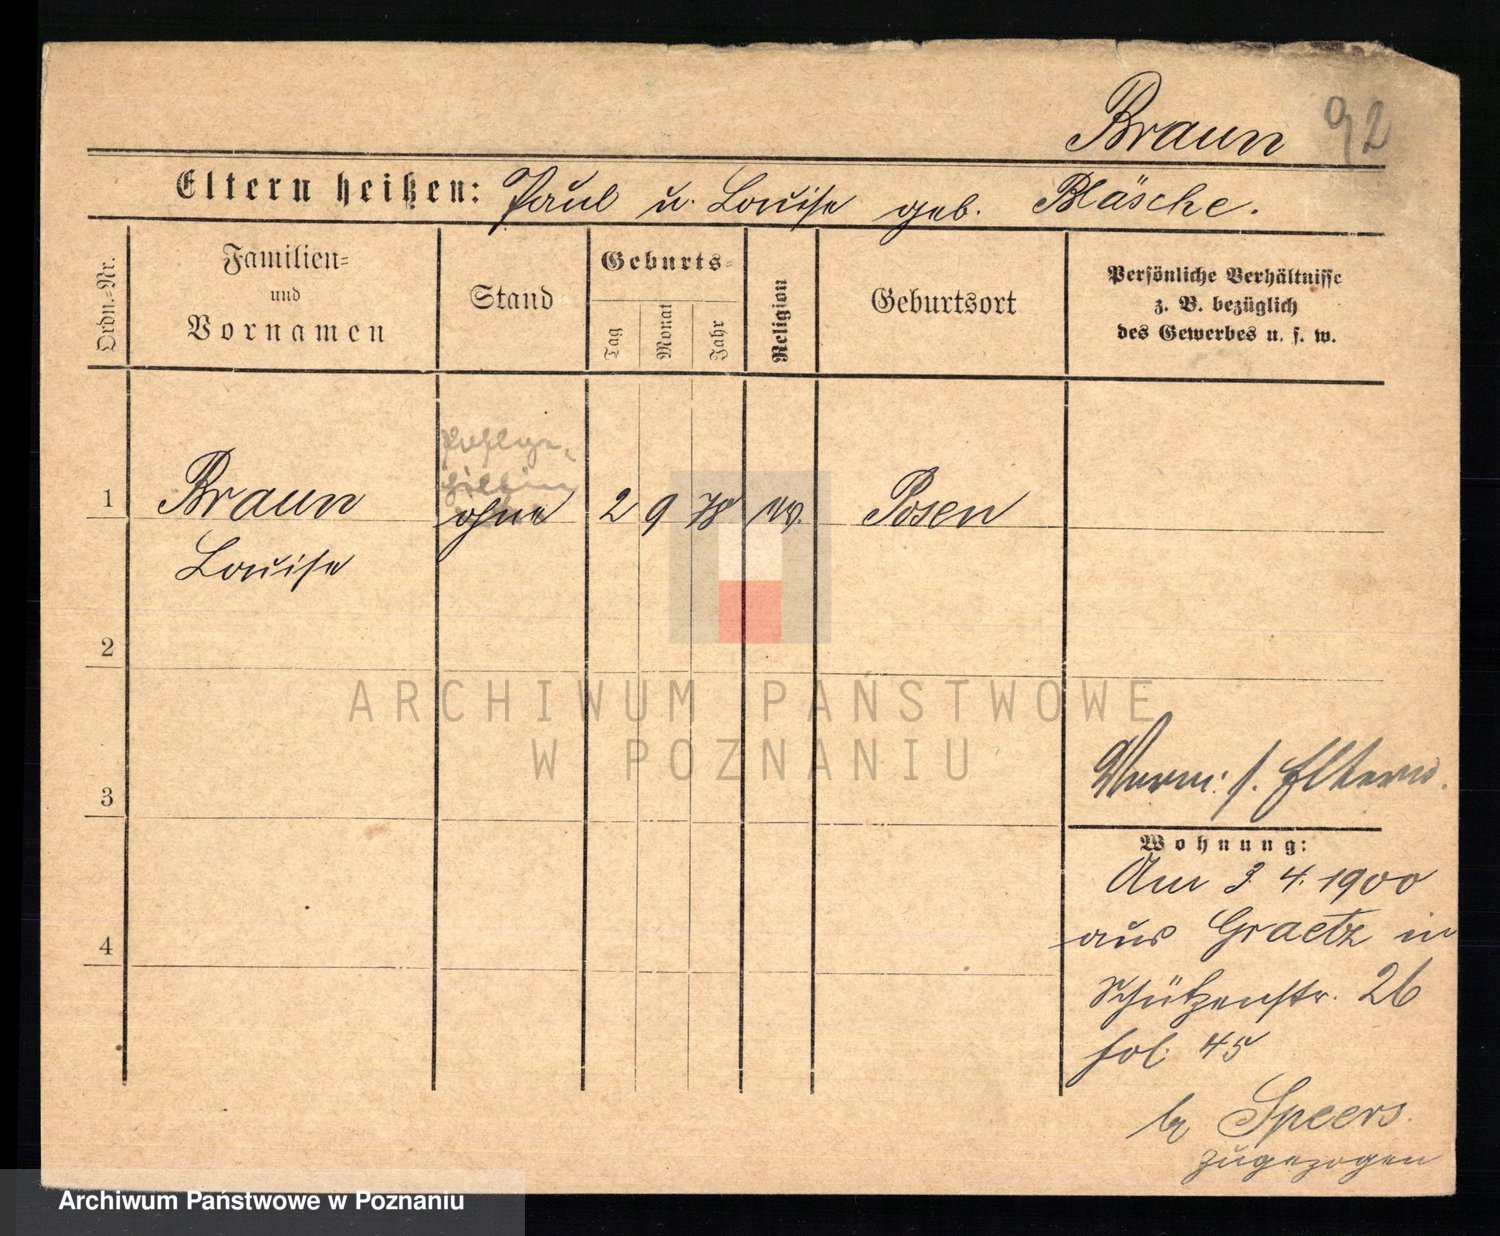 Braun 92
Eltern heißen: Paul u. Louise geb. Bläsche.
Ordn.=Nr.
Familien=
und
Vornamen
Stand
Geburts=
Tag
Monat
Jahr
Religion
Geburtsort
Persönliche Verhältnisse
z. B. bezüglich
des Gewerbes u. s. w.
1 Braun ohne 2 9 78 ev. Posen
Louise
2
3
4
Verm: s. Eltern.
Wohnung:
Am 3 4. 1900
aus Graetz in
Schützenstr. 26
fol. 45
b/ Speers.
zugezogen
ARCHIWUM PAŃSTWOWE
W POZNANIU
Archiwum Państwowe w Poznaniu